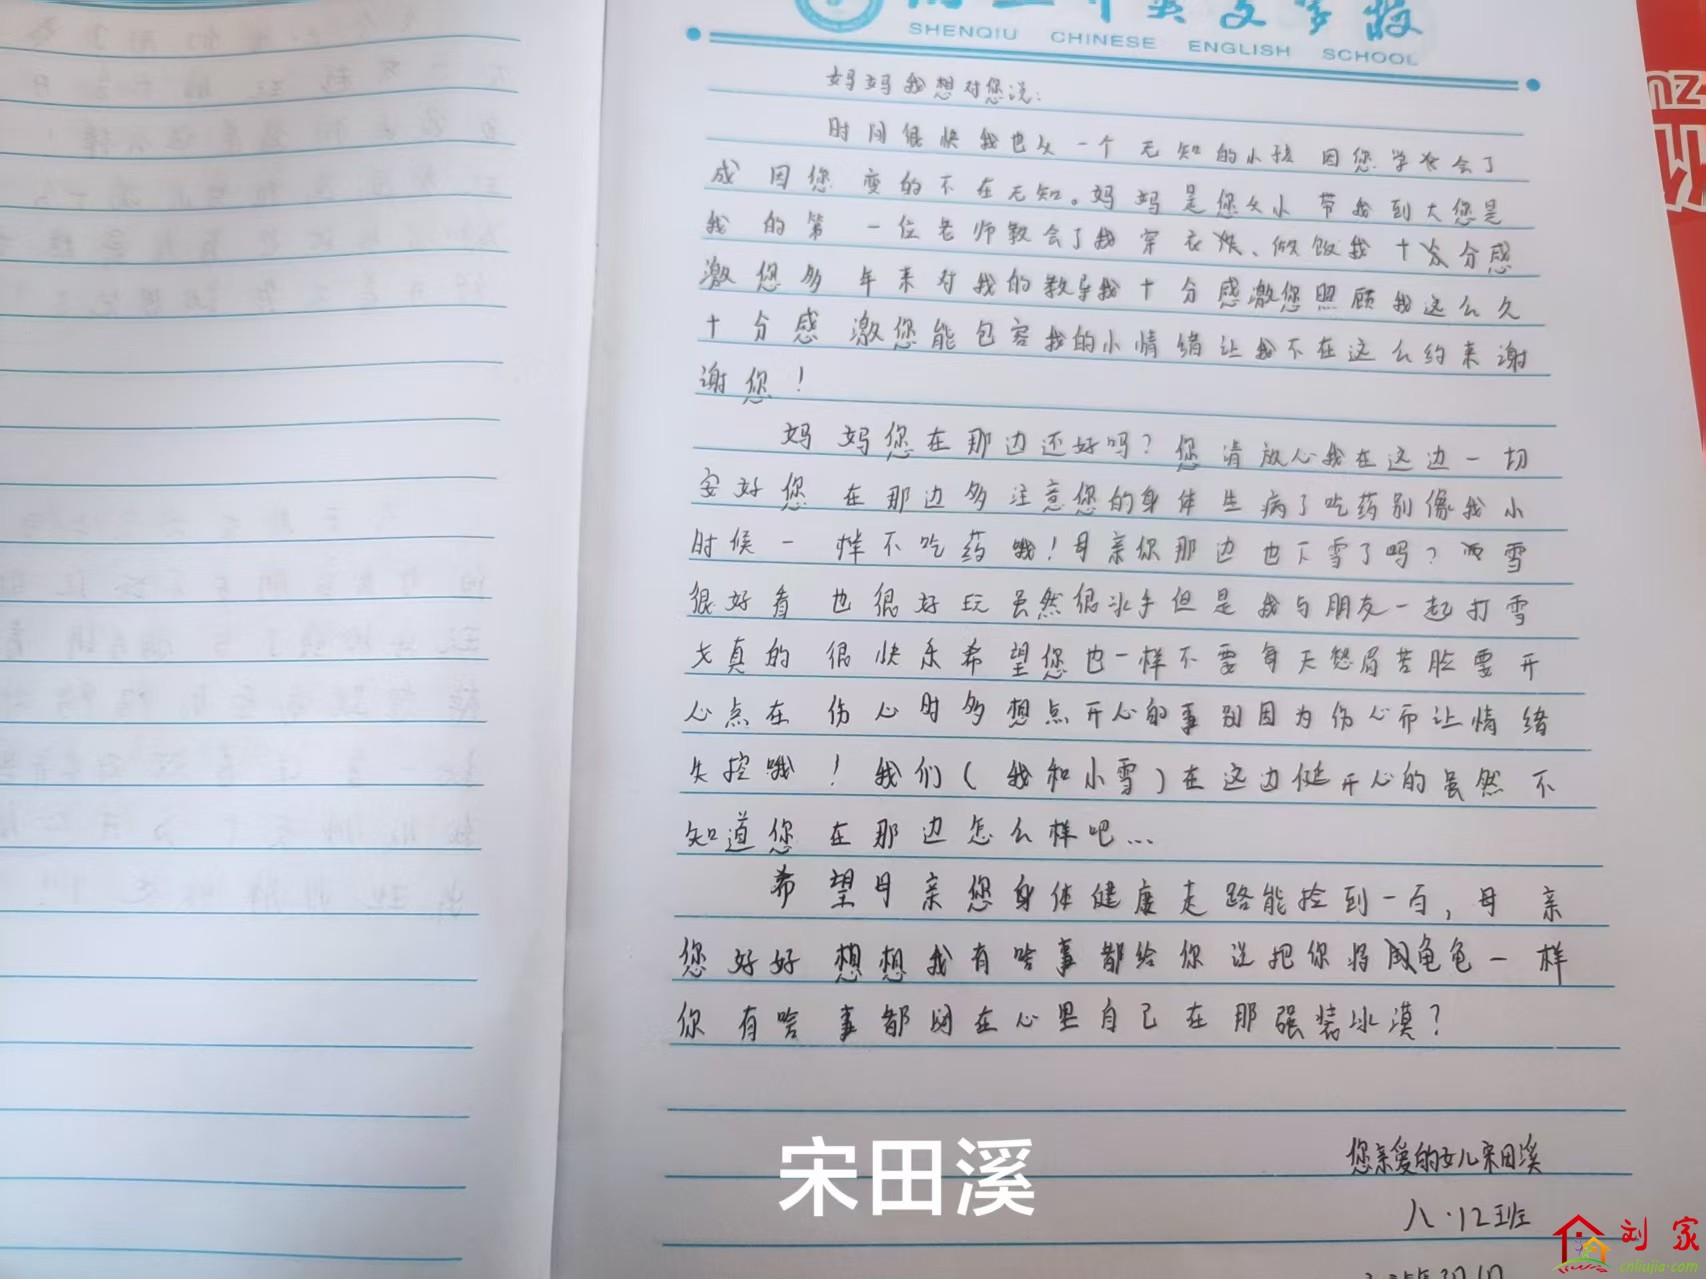 SHENQIU CHINESE ENGLISH SCHOOL
妈妈我想对您说:
时间很快我也从一个无知的小孩因您学会了
成因您变的不在无知。妈妈是您从小带我到大您是
我的第一位老师教会了我穿衣、做饭我十分感
激您多年来对我的教导我十分感激您照顾我这么久
十分感激您能包容我的小情绪让我不在这么约来谢
谢您!
妈妈您在那边还好吗?您请放心我在这边一切
安好您在那边多注意您的身体生病了吃药别像我小
时候一样不吃药哦!母亲你那边也下雪了吗?雪
很好看也很好玩虽然很冰手但是我与朋友一起打雪
丈真的很快乐希望您也一样不要每天愁眉苦脸要开
心点在伤心时多想点开心的事别因为伤心而让情绪
失控哦!我们(我和小雪)在这边挺开心的虽然不
知道您在那边怎么样吧...
希望母亲您身体健康走路能捡到一百,母亲
您好好想想我有啥事都给你说把你将龟龟一样
你有啥事都闷在心里自己在那强装冰漠?
您亲爱的女儿宋田溪
八·12班
宋田溪
刘家
cnliujia.com